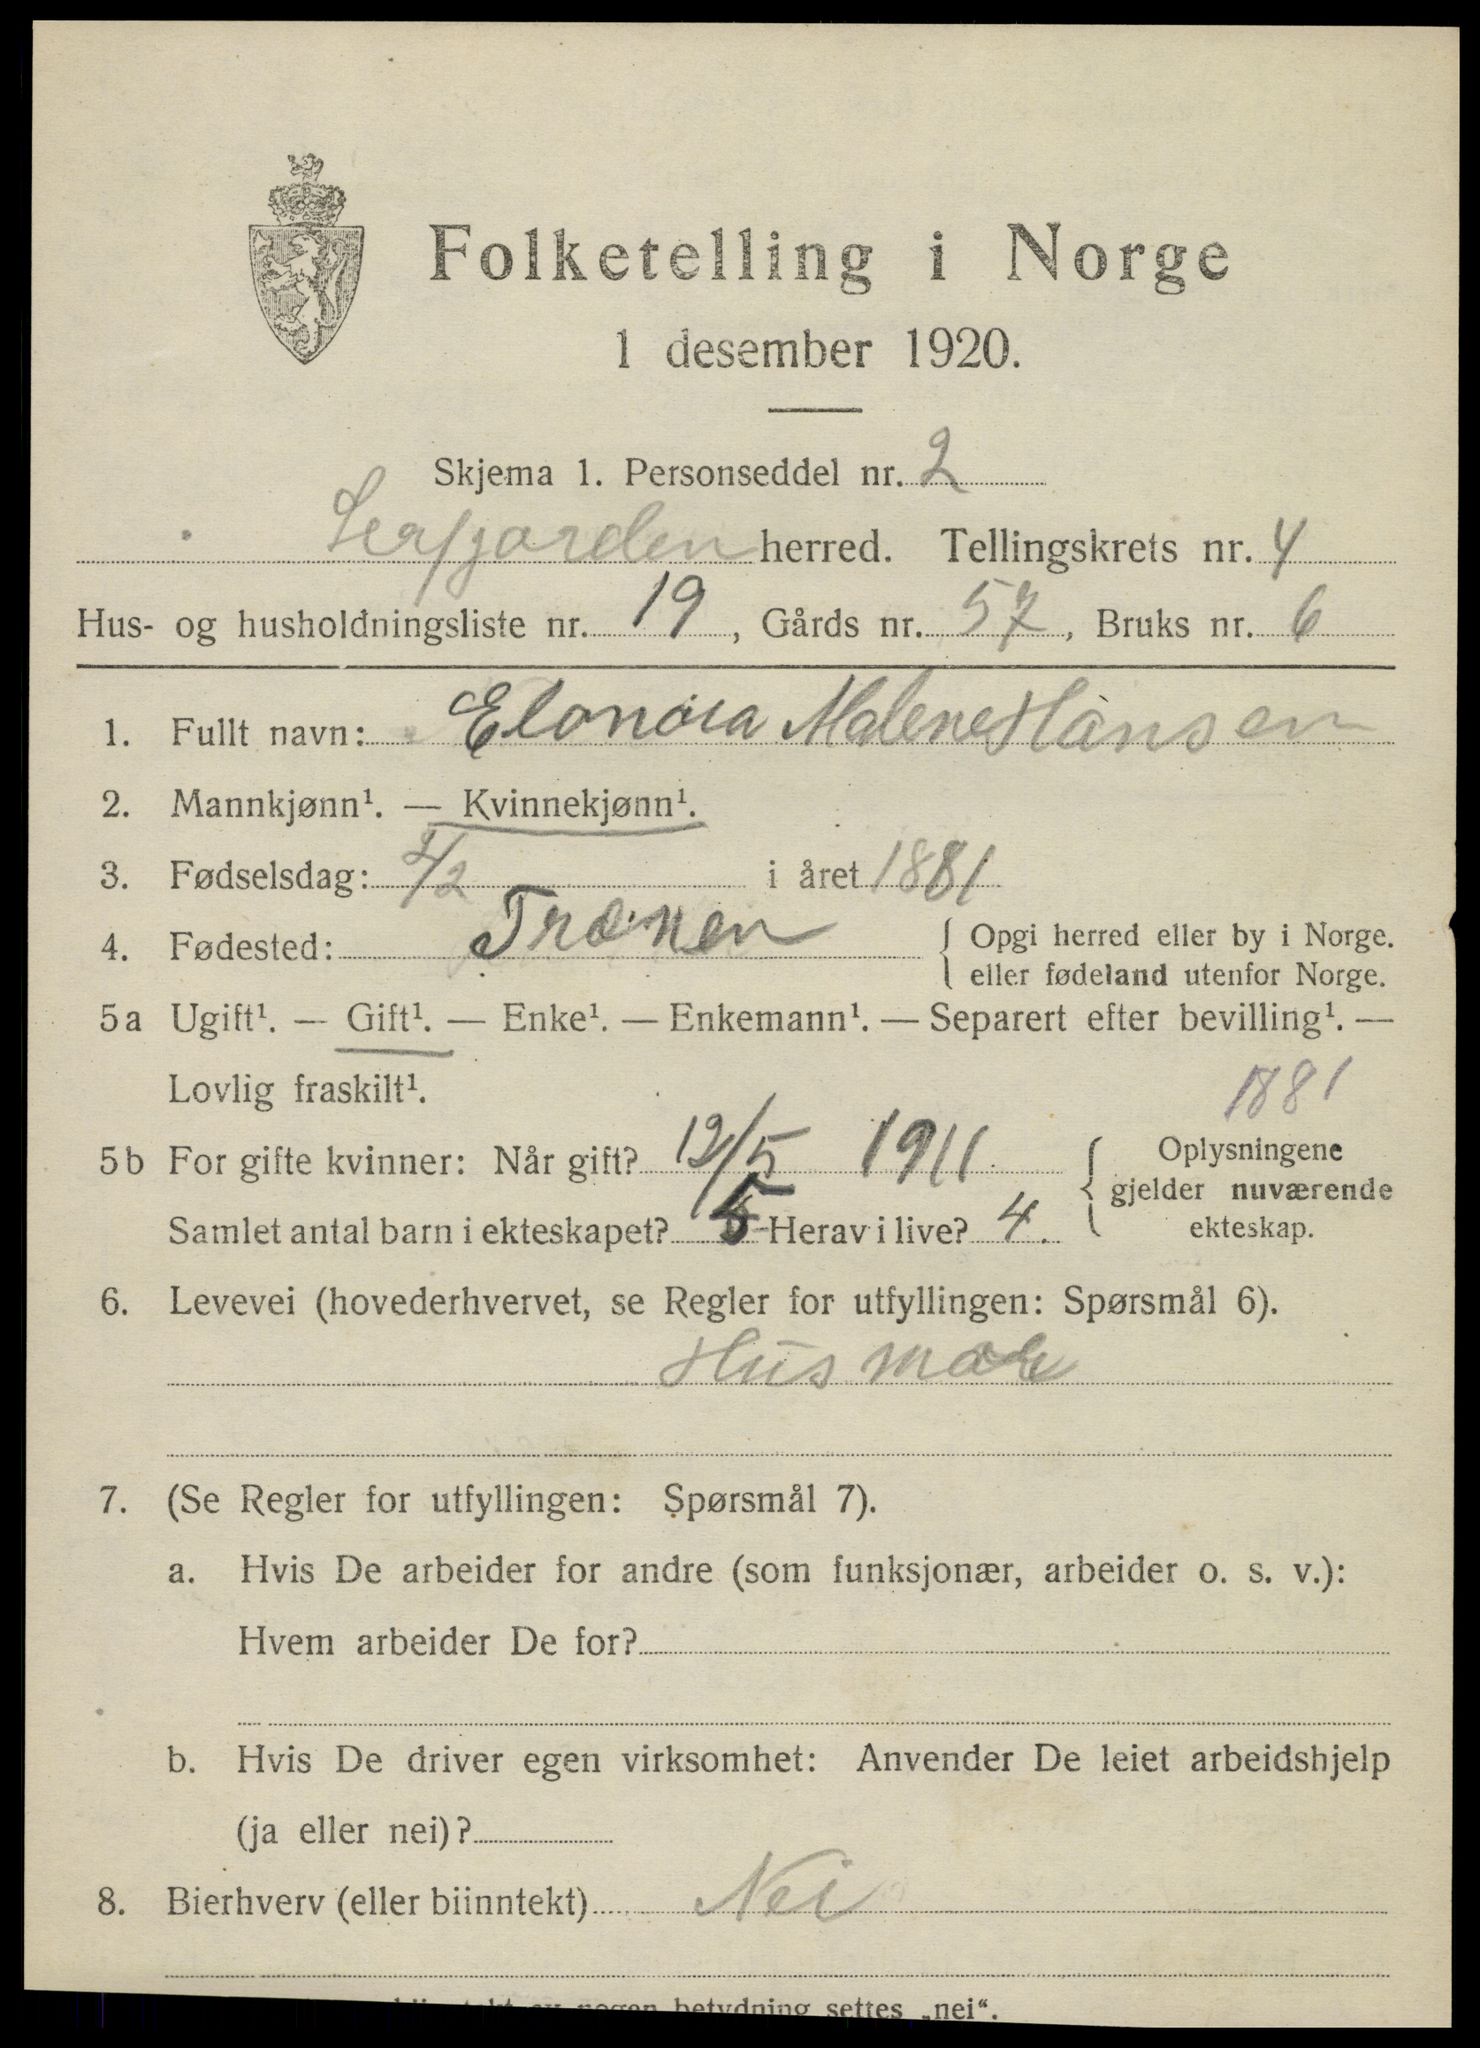 Folketelling i Norge
1 desember 1920.
Skjema 1. Personseddel nr. 2
Leirfjorden herred. Tellingskrets nr. 4
Hus- og husholdningsliste nr. 19, Gårds nr. 57, Bruks nr. 6
1. Fullt navn: Elonora Malene Hansen
2. Mannkjønn¹. — Kvinnekjønn¹.
3. Fødselsdag: 2/2 i året 1881
4. Fødested: Trænen { Opgi herred eller by i Norge.
eller fødeland utenfor Norge.
5a Ugift¹. — Gift¹. — Enke¹. — Enkemann¹. — Separert efter bevilling¹. —
Lovlig fraskilt¹.
1881
5b For gifte kvinner: Når gift? 12/5 1911 { Oplysningene
gjelder nuværende
Samlet antal barn i ekteskapet? 5 Herav i live? 4.
ekteskap.
6. Levevei (hovederhvervet, se Regler for utfyllingen: Spørsmål 6).
Husmor
7. (Se Regler for utfyllingen: Spørsmål 7).
a. Hvis De arbeider for andre (som funksjonær, arbeider o. s. v.):
Hvem arbeider De for?
b. Hvis De driver egen virksomhet: Anvender De leiet arbeidshjelp
(ja eller nei)?
8. Bierhverv (eller biinntekt) Nei
av nogen betydning settes „nei“.